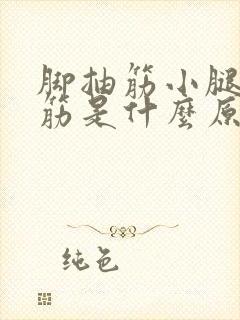 脚抽筋小腿
筋是什麼原
纯色